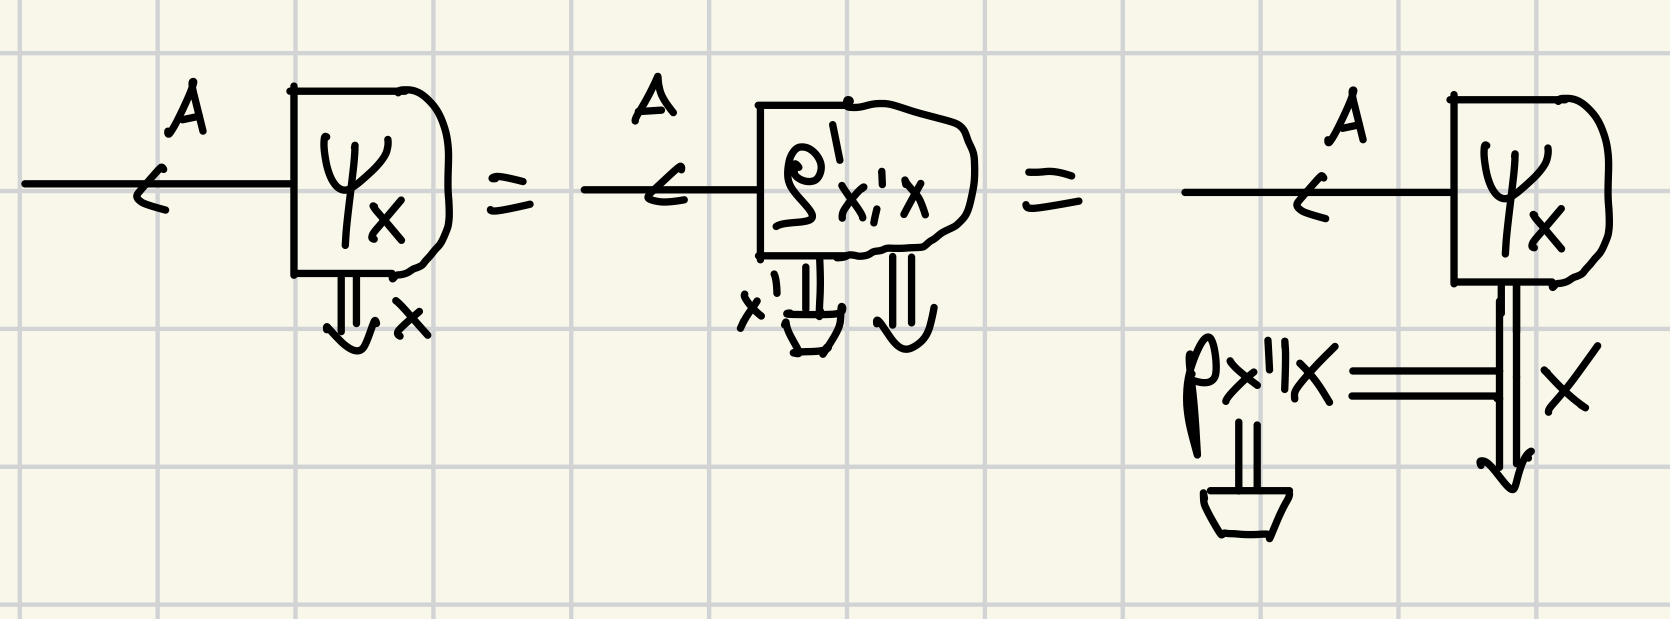 A ψx x
=
A ρ'x',x x'
=
A ψx
px"|x x